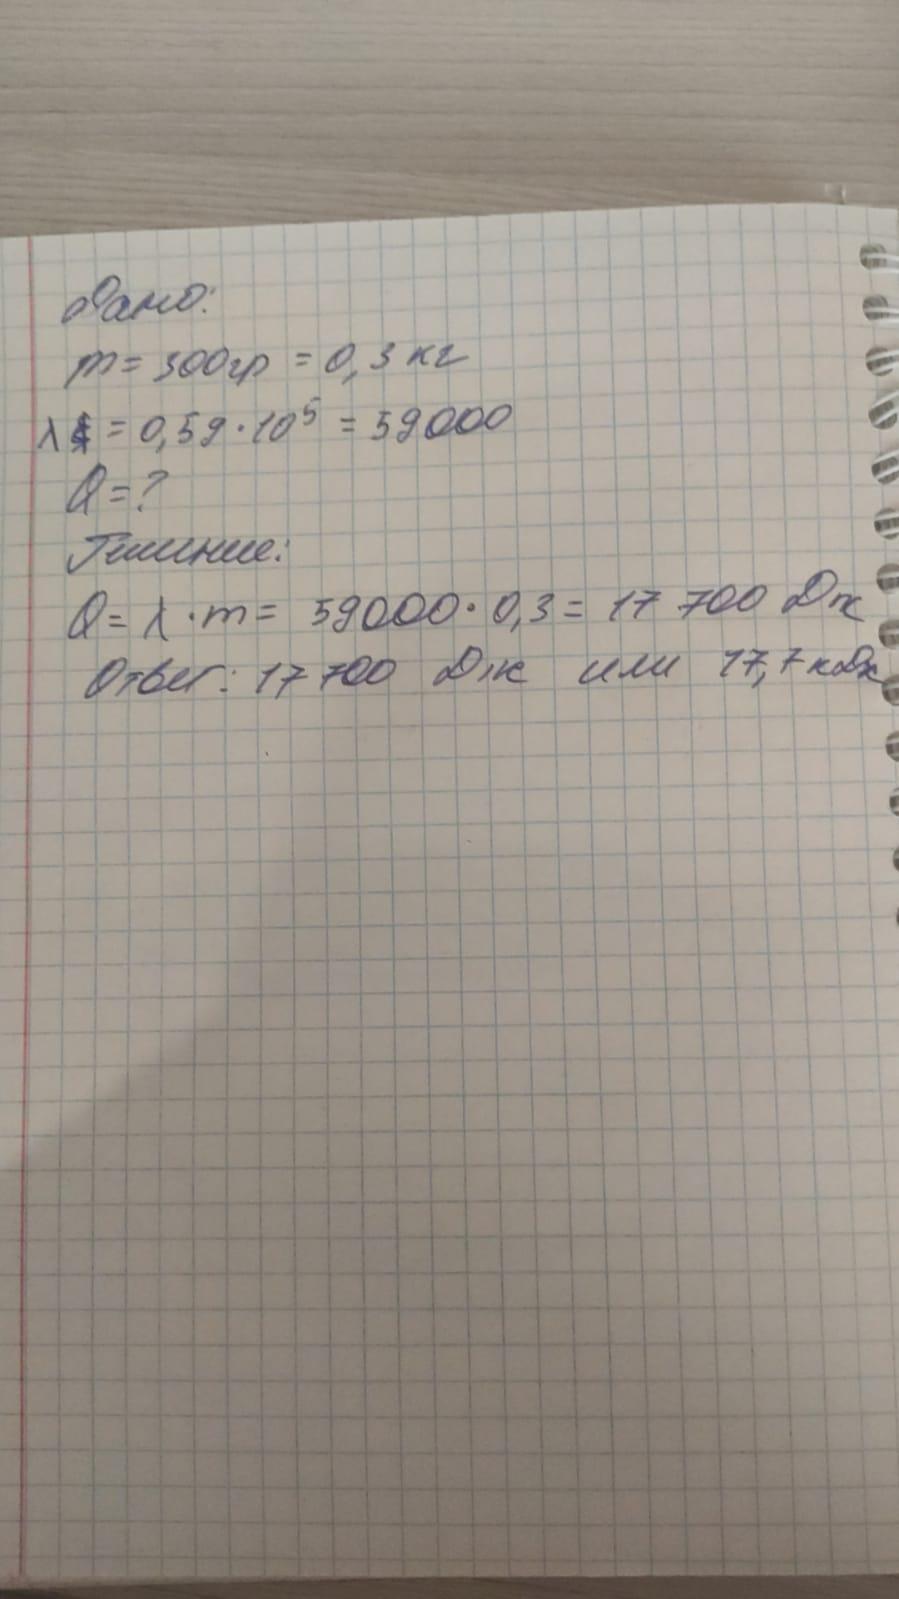 Дано:
m = 300гр = 0,3 кг
λ = 0,59 · 10⁵ = 59000
Q = ?
Решение:
Q = λ · m = 59000 · 0,3 = 17 700 Дж
Ответ: 17 700 Дж или 17,7 кДж